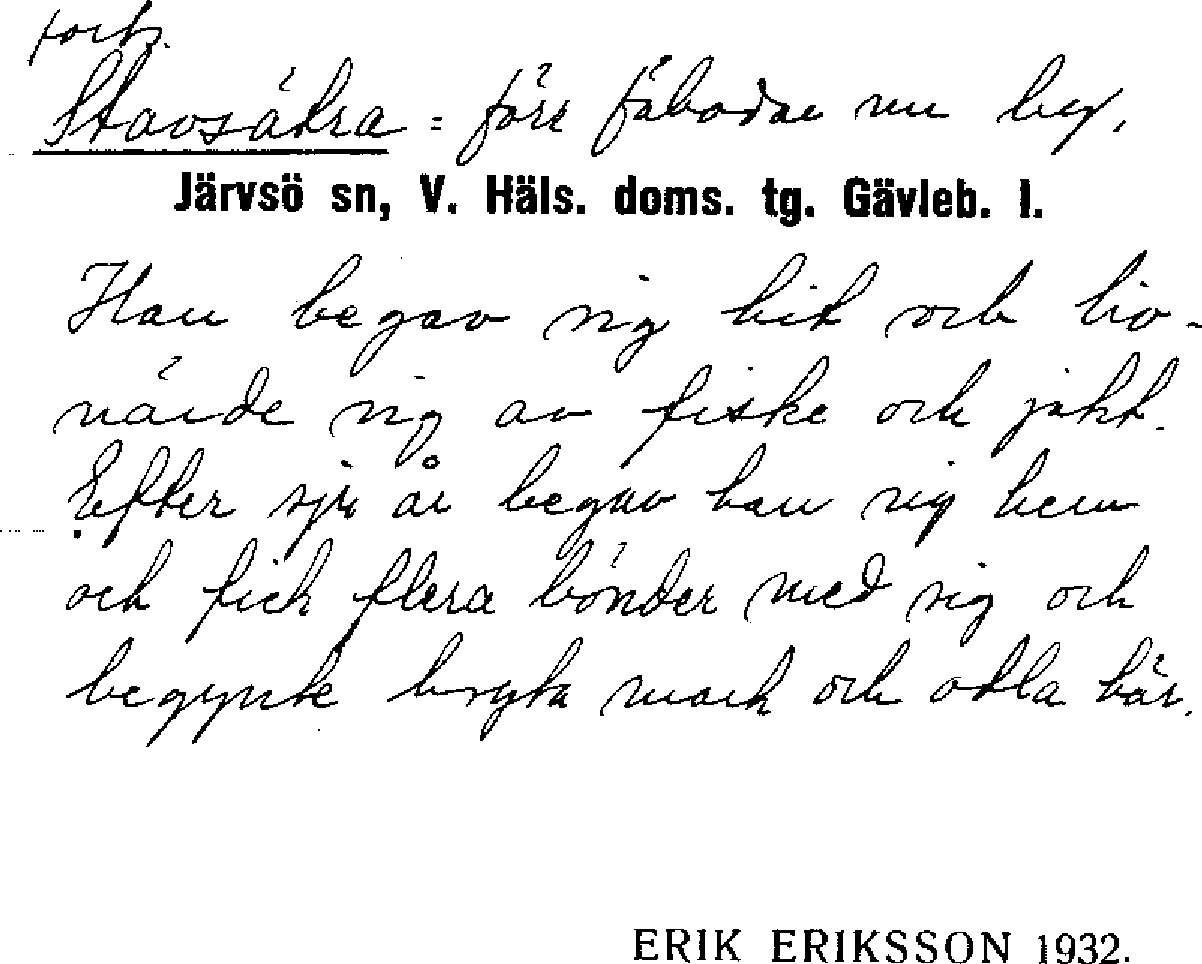 forts.
Stavsätra = förr fäbodar nu by.
Järvsö sn, V. Häls. doms. tg. Gävleb. l.
Han begav sig hit och liv-
närde sig av fiske och jakt.
Efter sju år begav han sig hem
och fick flera bönder med sig och
begynte bryta mark och odla här.
ERIK ERIKSSON 1932.